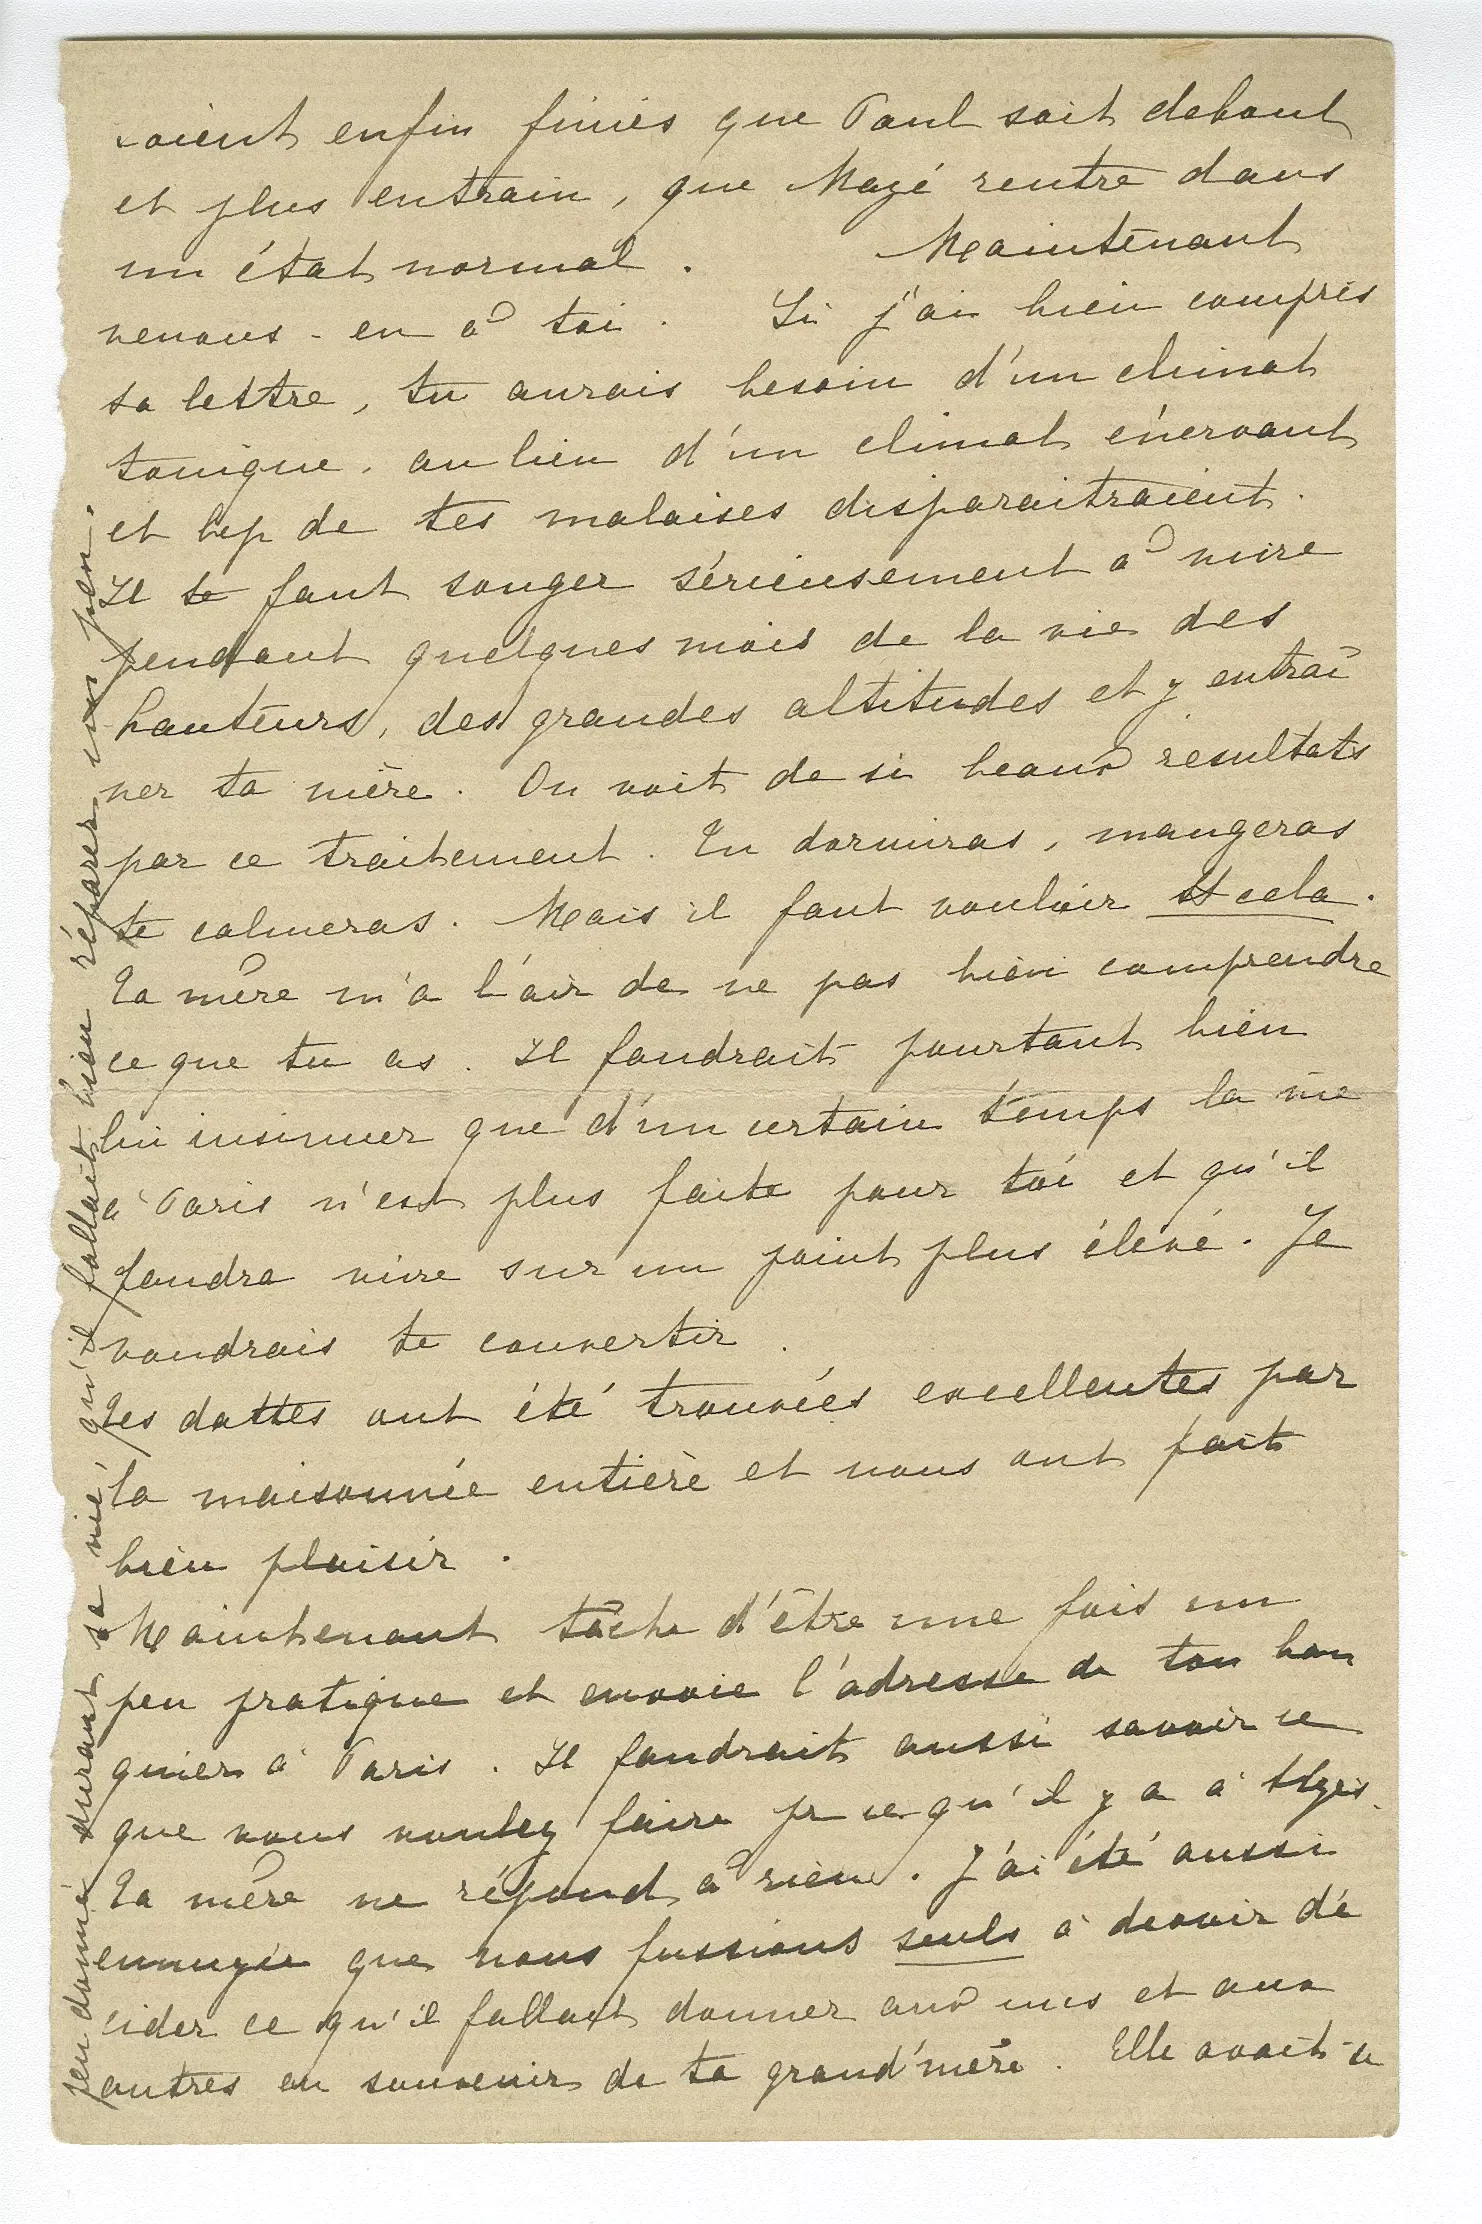 soient enfin finies que Paul soit debout
et plus entrain, que Mazé rentre dans
un état normal. Maintenant
venons-en à toi. Si j'ai bien compris
ta lettre, tu aurais besoin d'un climat
tonique, au lieu d'un climat énervant
et bcp de tes malaises disparaitraient.
Il te faut songer sérieusement à vivre
pendant quelques mois de la vie des
hauteurs, des grandes altitudes et y entraî
ner ta mère. On voit de si beaux résultats
par ce traitement. Tu dormiras, mangeras
te calmeras. Mais il faut vouloir cela.
Ta mère m'a l'air de ne pas bien comprendre
ce que tu as. Il faudrait pourtant bien
lui insinuer que d'un certain temps la vie
à Paris n'est plus faite pour toi et qu'il
faudra vivre sur un point plus élevé. Je
voudrais te convertir.
Les dattes ont été trouvées excellentes par
la maisonnée entière et nous ont fait
bien plaisir.
Maintenant tâche d'être une fois un
peu pratique et envoie l'adresse de ton ban
quier à Paris. Il faudrait aussi savoir ce
que vous voulez faire pr ce qu'il y a à
Ta mère ne répond à rien. J'ai été aussi
ennuyée que nous fussions seuls à devoir dé
cider ce qu'il fallait donner aux uns et aux
autres en souvenir de ta grand'mère. Elle avait si
peu donné durant sa vie qu'il fallait bien réparer un peu.